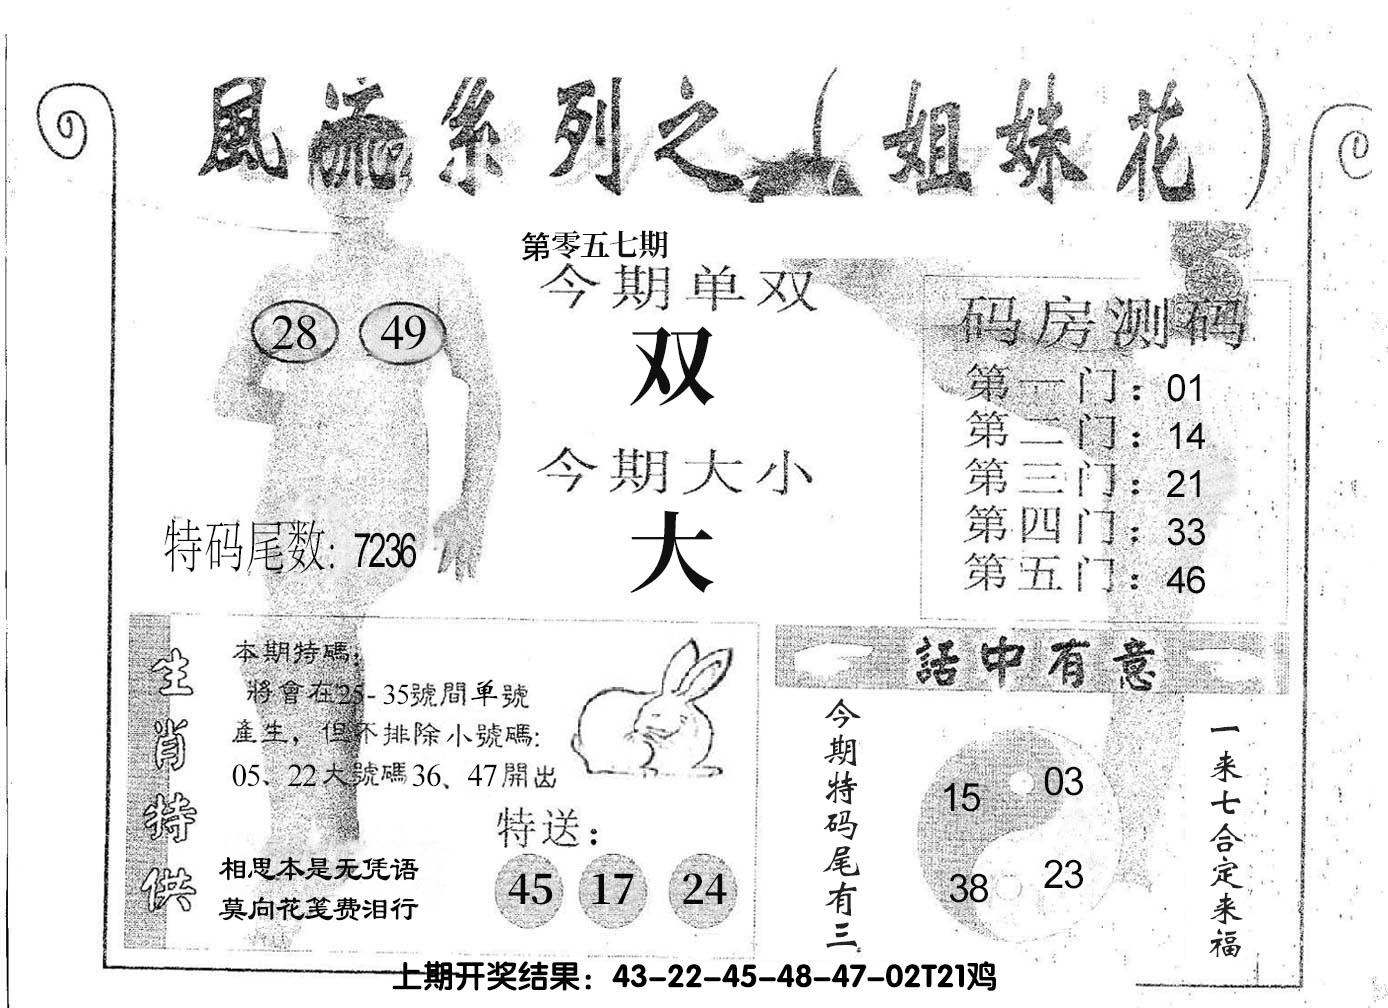 風流系列之（姐妹花）
第零五七期
今期单双
双
今期大小
大
28 49
特码尾数: 7236
码房测码
第一门：01
第二门：14
第三门：21
第四门：33
第五门：46
生肖特供
本期特碼：
將會在25-35號間单號
產生，但不排除小號碼:
05、22大號碼36、47開出
特送：
45 17 24
相思本是无凭语
莫向花笺费泪行
話中有意
今期特码尾有三
15 03
38 23
一来七合定来福
上期开奖结果：43-22-45-48-47-02T21鸡